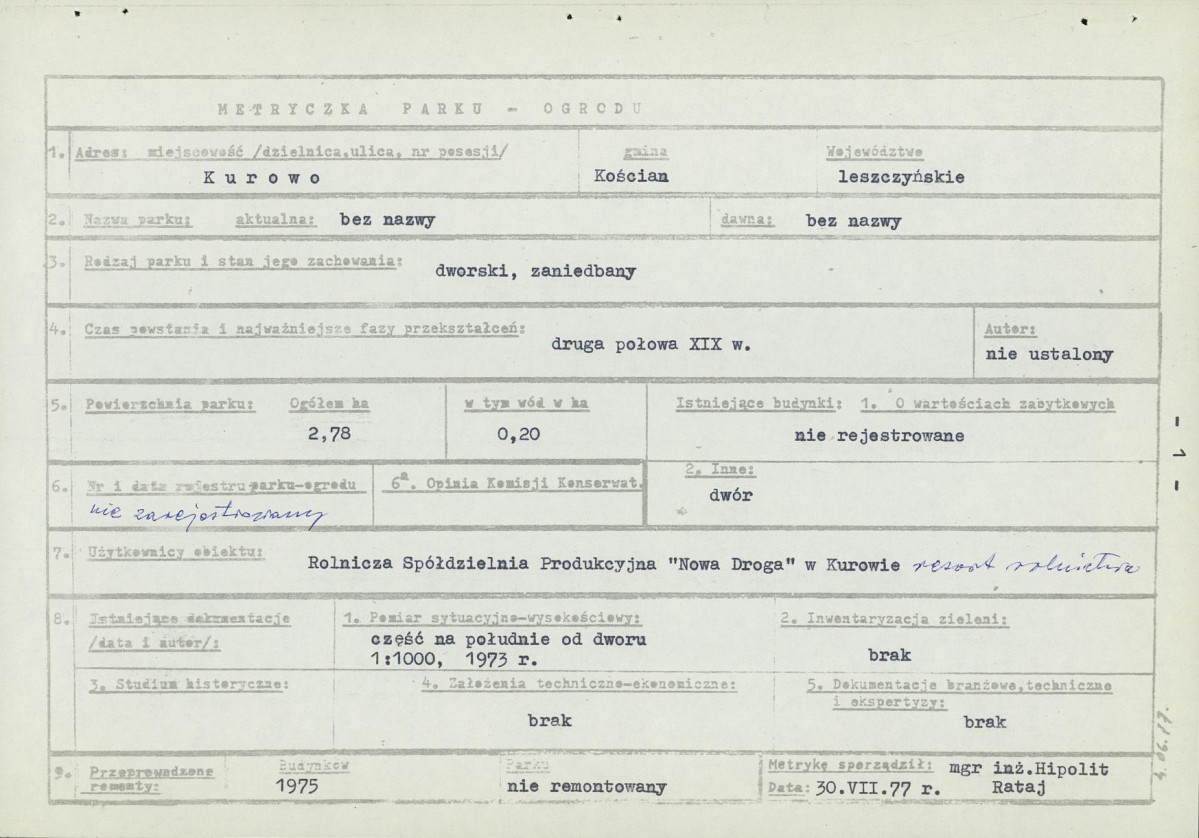 METRYCZKA PARKU - OGRODU
1. Adres: miejscowość /dzielnica,ulica, nr posesji/ gmina Województwo
Kurowo Kościan leszczyńskie
2. Nazwa parku: aktualna: bez nazwy dawna: bez nazwy
3. Rodzaj parku i stan jego zachowania: dworski, zaniedbany
4. Czas powstania i najważniejsze fazy przekształceń: Autor:
druga połowa XIX w. nie ustalony
5. Powierzchnia parku: Ogółem ha w tym wód w ha Istniejące budynki: 1. O wartościach zabytkowych
2,78 0,20 nie rejestrowane
6. Nr i data rejestru parku-ogrodu 6a. Opinia Komisji Konserwat. 2. Inne:
nie zarejestrowany dwór
7. Użytkownicy obiektu: Rolnicza Spółdzielnia Produkcyjna "Nowa Droga" w Kurowie resort rolnictwa
8. Istniejące dokumentacje /data i autor/: 1. Pomiar sytuacyjno-wysokościowy: 2. Inwentaryzacja zieleni:
część na południe od dworu
1:1000, 1973 r. brak
3. Studium historyczne: 4. Założenia techniczno-ekonomiczne: 5. Dokumentacje branżowe,techniczne
i ekspertyzy:
brak brak
9. Przeprowadzone remonty: Budynków Parku Metrykę sporządził: mgr inż.Hipolit
1975 nie remontowany Data: 30.VII.77 r. Rataj
- 1 -